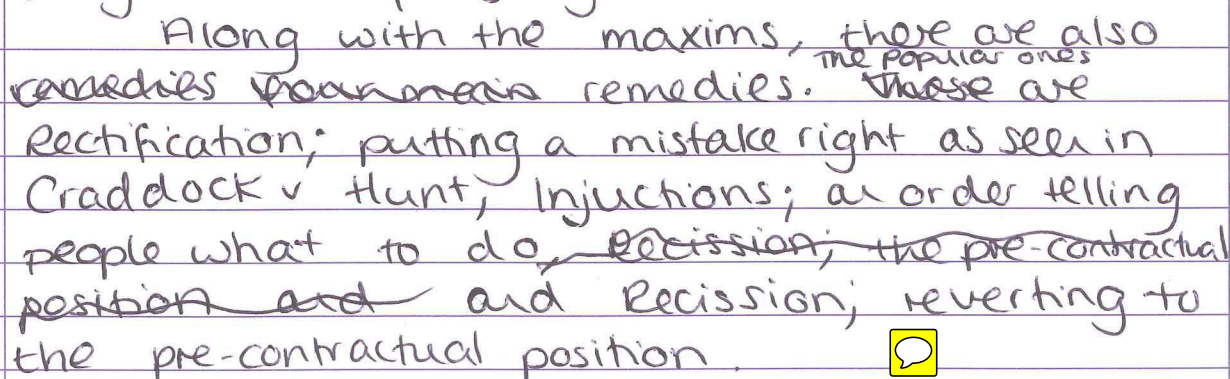 Along with the maxims, there are also
The popular ones
remedies remedies. These are
Rectification; putting a mistake right as seen in
Craddock v Hunt, Injuctions; an order telling
people what to do, Recission; the pre-contractual
position and and Recission; reverting to
the pre-contractual position.